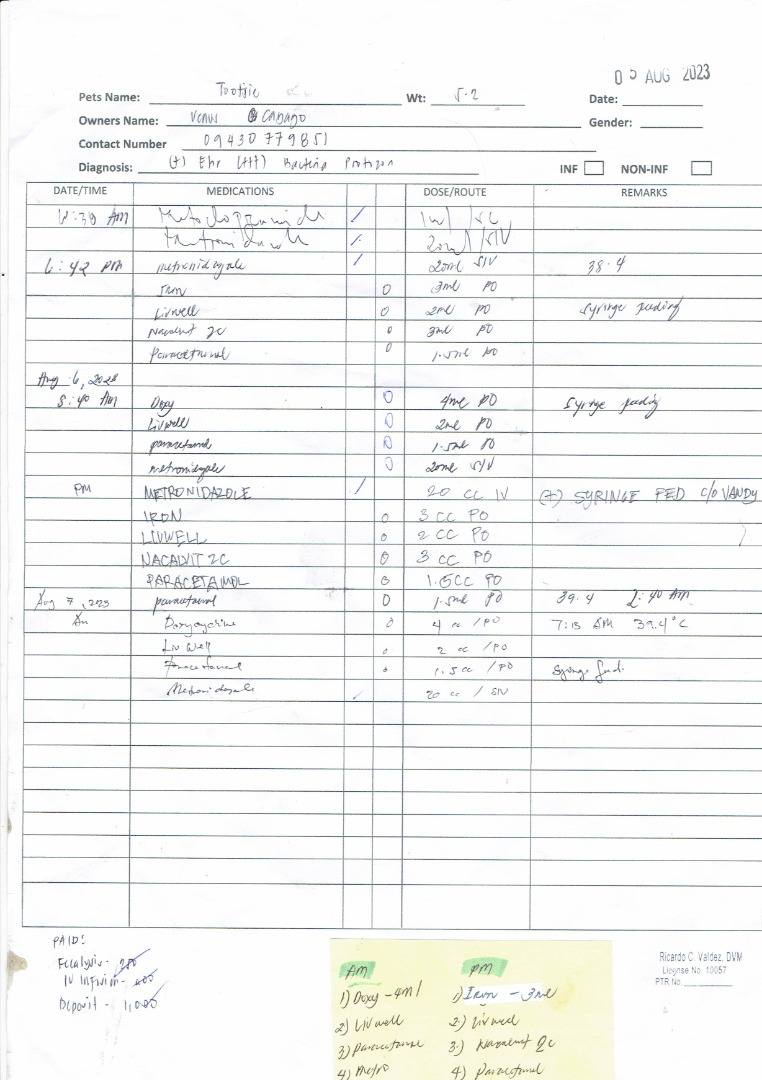 05 AUG 2023
Pets Name: Tootsie Wt: 5.2 Date:
Owners Name: Venus Cabago Gender:
Contact Number 09430779851
Diagnosis: (+) Ehr (+++) Bacteria Protozoa INF NON-INF
DATE/TIME MEDICATIONS DOSE/ROUTE REMARKS
AM Metoclopramide / 1ml / SC
/ 20ml / SIV
6:42 PM metronidazole / 20ml SIV 38.4
Iron O 3ml PO
Livwell O 2ml PO Syringe feeding
Nacalvit 2C O 3ml PO
Paracetamol O 1.5ml PO
Aug 6, 2023
5:40 AM Doxy O 4ml PO Syringe feeding
Livwell O 2ml PO
paracetamol O 1.5ml PO
metronidazole O 20ml SIV
PM METRONIDAZOLE / 20 CC IV (+) SYRINGE FED C/O VANDY
IRON O 3 CC PO
LIVWELL O 2 CC PO
NACALVIT 2C O 3 CC PO
PARACETAMOL O 1.5CC PO
Aug 7, 2023 paracetamol O 1.5ml PO 39.4 2:40 AM
AM Doxycycline O 4 cc /PO 7:13 AM 39.4°C
Liv Well O 2 cc /PO
Paracetamol O 1.5 cc /PO Syringe feed.
Metronidazole / 20 cc / SIV
PAID:
Fecalysis -
IV Infusion -
Deposit - 1,000
Ricardo C. Valdez, DVM
License No. 10057
PTR No.
AM PM
1) Doxy - 4ml 1) Iron - 3ml
2) Livwell 2.) Livwell
3) Paracetamol 3.) Nacalvit 2c
4) Metro 4) Paracetamol